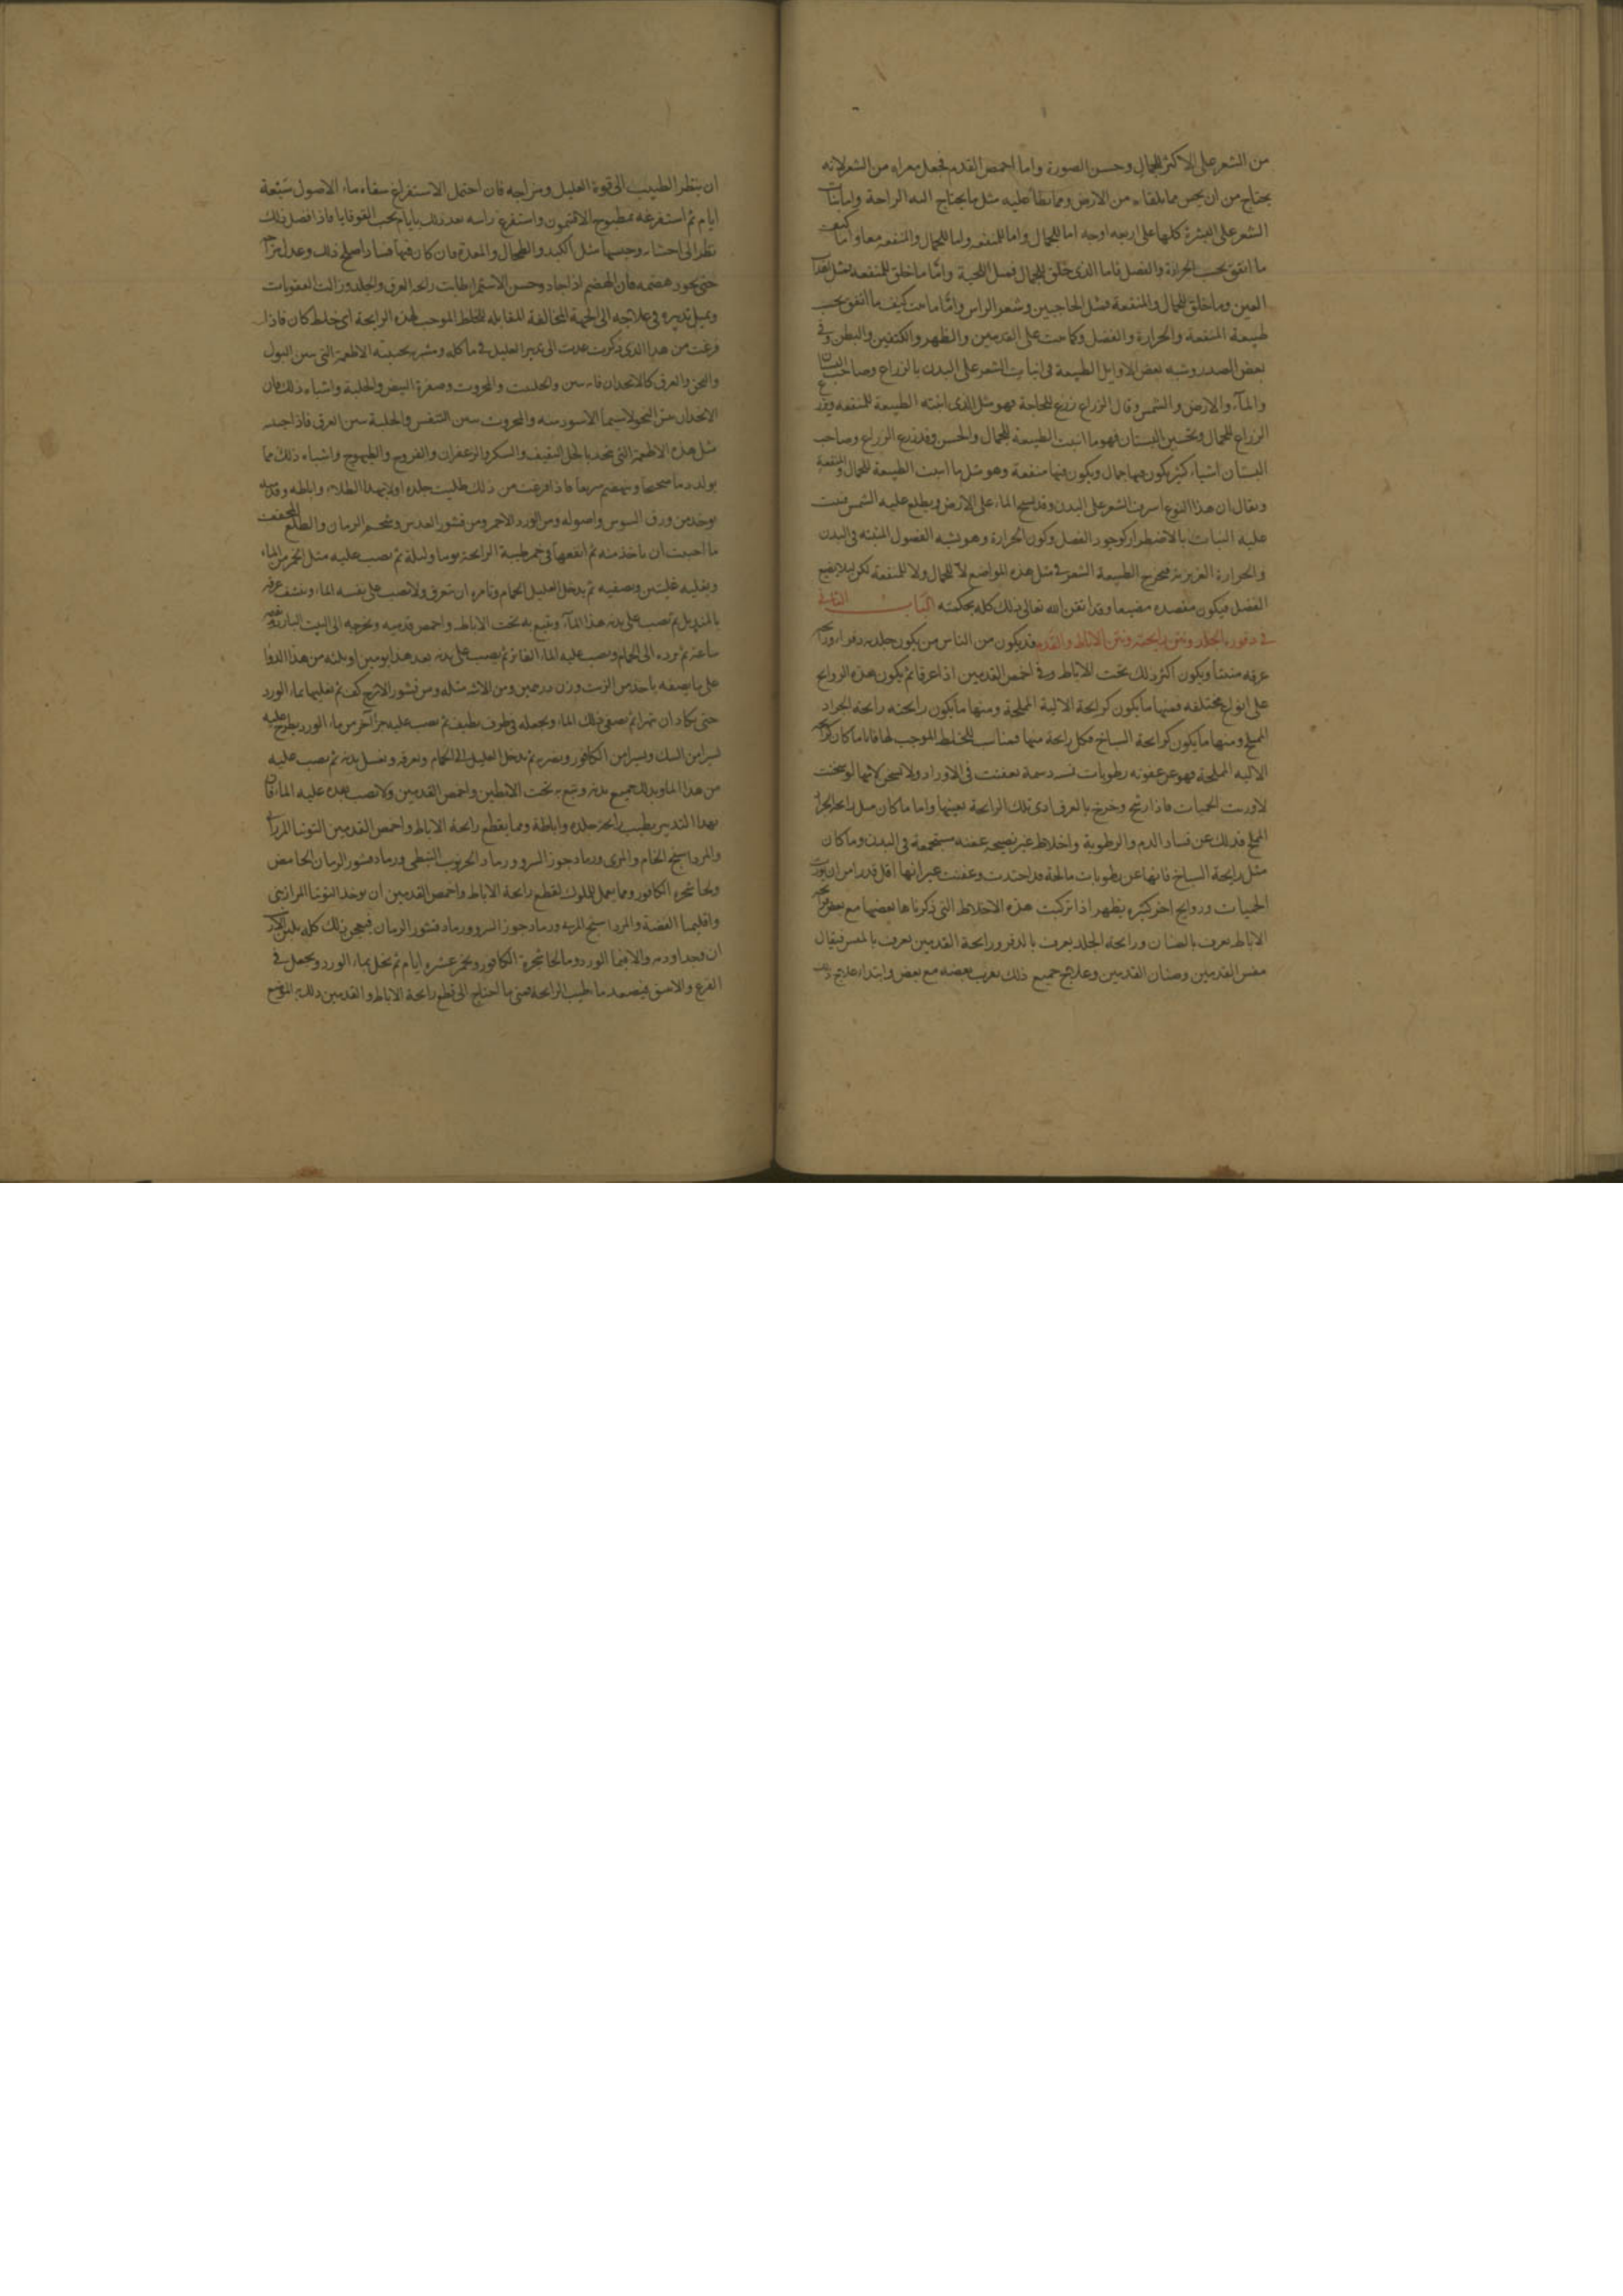 من الشعر على الاكثر للجمال وحسن الصورة واما اخمص القدم فجعل معراه من الشعر لانه
يحتاج من ان يحس مما يلقاه من الارض ومما يطأ عليه مثل ما يحتاج اليه الراحة ونبات
الشعر على البشرة كلها على اربعه اوجه اما للجمال واما للمنفعه واما للجمال والمنفعه معا واما كيف
ما اتفق بحسب الحرارة والفضل فاما الذى خلق للجمال فمثل اللحية واما ما خلق للمنفعه فمثل اهداب
العين وما خلق للجمال والمنفعة فمثل الحاجبين وشعر الراس واما ما نبت كيف ما اتفق بحسب
طبيعة المنفعة والحرارة والفضل وكما نبت على القدمين والظهر والكتفين والبطن وفى
بعض الصدر وشبه بعض الاوايل الطبيعة فى انبات الشعر على البدن بالزراع وصاحب البستان
والمآء والارض والشمس وقال الزراع زرع للحاجة فهو مثل الذى انبته الطبيعة للمنفعه وزرع
الزراع للجمال وتحسين البستان فهو ما انبت الطبيعة للجمال والحسن وقد زرع الزراع وصاحب
البستان اشياء كثير يكون فيها جمال ويكون فيها منفعة وهو مثل ما انبت الطبيعة للجمال والمنفعة
ويقال ان هذا النوع اشرف الشعر على البدن وقد يسيح الماء على الارض ويطلع عليه الشمس فنبت
عليه النبات بالاضطرار كوجود الفضل وكون الحرارة وهو يشبه الفضول المنبته فى البدن
والحرارة الغريزية فتخرج الطبيعة الشعر فى مثل هذه المواضع لا للجمال ولا للمنفعة لكن ليلا يضيع
الفضل فيكون مقصده مضيعا وقد اتقن الله تعالى ذلك كله بحكمته الباب الثانى
فى دفورة الجلد ونتن رايحته ونتن الاباط والقدم قد يكون من الناس من يكون جلده دفرا ورايحة
عرقه منتنا ويكون اكثر ذلك تحت الاباط وفى اخمص القدمين اذا عرقا ثم يكون هذه الروايح
على انواع مختلفه فمنها ما يكون كرايحة الالية المملحة ومنها ما يكون رايحته رايحة الجراد
المملح ومنها ما يكون كرايحة السباخ فكل رايحة منها فمناسب للخلط الموجب لها فاما ما كان كرايحة
الاليه المملحة فهو عن عفونه رطوبات دسمة تعفنت فى الاوراد ولا تسخن لانها لو سخنت
لاورثت الحميات فاذا رشح وخرج بالعرق ادى تلك الرايحة بعينها واما ما كان مثل رايحة الجراد
المملح فذلك عن فساد الدم والرطوبة واخلاط غير نضيجه عفنه مستجمعة فى البدن وما كان
مثل رايحة السباخ فانها عن رطوبات مالحة قد احتدت وعفنت غير انها اقل قدرا من ان يورث
الحميات وروايح اخر كثيره يظهر اذا تركبت هذه الاخلاط التى ذكرناها بعضها مع بعض فرايحة
الاباط يعرف بالصنان ورايحة الجلد يعرف بالدفر ورايحة القدمين يعرف
القدمين وصنان القدمين وعلاج جميع ذلك يقرب بعضه مع بعض وابتداء علاج ذلك
ان ينظر الطبيب الى قوة العليل ومزاجه فان احتمل الاستفراغ سقاه ماء الاصول سبعة
ايام ثم استفرغه بمطبوخ الافتيمون واستفرغ راسه بعد ذلك بايام بحب القوقايا فاذا فضل ذلك
نظر الى احشايه وحسها مثل الكبد والطحال والمعدة فان كان فيها فساد اصلح ذلك وعدل مزاجه
حتى يجود هضمه فان الهضم اذا جاد وحسن الاستمرا طابت رايحة العرق والجلد وزالت العفونات
ويميل تدبيره فى علاجه الى الجهة المخالفة المقابله للخلط الموجب لهذه الرايحة اى خلط كان فاذا
فرغت من هذا الذى ذكرت عدت الى تدبير العليل فى ماكله ومشربه بجنبته الاطعمة التى تنتن البول
والنجو والعرق كالانجدان فانه ينتن والحلتيت والمحروت وصفرة البيض والحلبة واشباه ذلك فان
الانجدان ينتن النجو لا سيما الاسود منه والمحروت ينتن التنفس والحلبة تنتن العرق فاذا اجتنب
مثل هذه الاطعمة التى تتخذ بالخل الثقيف والسكر والزعفران والفروج والطيهوج واشباه ذلك مما
يولد دما صحيحا وينهضم سريعا فاذا فرغت من ذلك طليت جلده اولا بهذا الطلاء واباطه وقدميه
يوخذ من ورق السوس واصوله ومن الورد الاحمر ومن قشور العدس وشحم الرمان والطلع المجفف
ما احببت ان تاخذ منه ثم انقعها فى خمر طيبة الرايحة يوما وليلة ثم تصب عليه مثل الخمر من الماء
ويغليه غليتين ويصفيه ثم يدخل العليل الحمام وتامره ان يتعرق ولا تصب على نفسه الماء وينشف عرقه
بالمنديل ثم تصب على بدنه هذا المآء ويتبع به تحت الاباط واخمص قدميه ويخرجه الى البيت البارد
ساعة ثم يرده الى الحمام ويصب عليه الماء الفاتر ثم يصب على بدنه بعد هذا بيومين او ثلثه من هذا الدوا
على ما يصفه ياخذ من الزيت وزن درهمين ومن الاشنه مثله ومن قشور الاترج كف ثم تغليها بماء الورد
حتى تكاد ان تتهرا ثم تصفى ذلك الماء ويجعله فى ظرف نظيف ثم يصب عليه جزا آخر من ماء الورد يطرح عليه
يسيرا من السك ويسيرا من الكافور ويضربه ثم يدخل العليل الى الحمام ويعرقه ويغسل بدنه ثم يصب عليه
من هذا الماء ويدلك جميع بدنه ويتبع به تحت الابطين واخمص القدمين ولا تصب بعده عليه الماء فان
بهذا التدبير يطيب رايحة جلده واباطة ومما يقطع رايحة الاباط واخمص القدمين التوتيا
والمرداسنج الخام والمربى ورماد جوز السرو ورماد الخرنوب النبطى ورماد قشور الرمان الحامض
ولحا شجرة الكافور ومما يعمل للملوك لقطع رايحة الاباط واخمص القدمين ان يوخذ التوتيا المرازبى
واقليميا الفضة والمرداسنج المربى ورماد جوز السرو ورماد قشور الرمان فيعجن ذلك كله بلبن
ان وجد اوديه والا فبماء الورد وماء لحا شجرة الكافور ويخمر عشرة ايام ثم تحل بماء الورد ويجعل فى
القرع والانبيق فيصعد ماء طيب الرايحة فمتى ما احتاج الى قطع رايحة الاباط والقدمين دلك به الموضع